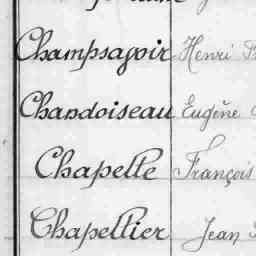 Champsavoir Henri
Chandoiseau Eugène
Chapelle François
Chapellier Jean